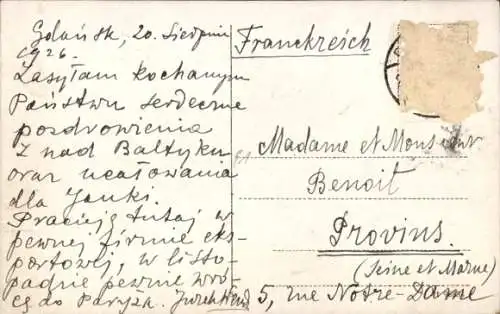 Gdańsk, 20. Sierpnia
1926.
Zasyłam kochanym
Państwu serdeczne
pozdrowienia
z nad Bałtyku
oraz ucałowania
dla Janki.
Pracuję tutaj w
pewnej firmie eks-
portowej, w listo-
padzie pewnie wró-
cę do Paryża. Jurek
Franckreich
Madame et Monsieur
Benoit
Provins.
(Seine et Marne)
5, rue Notre-Dame